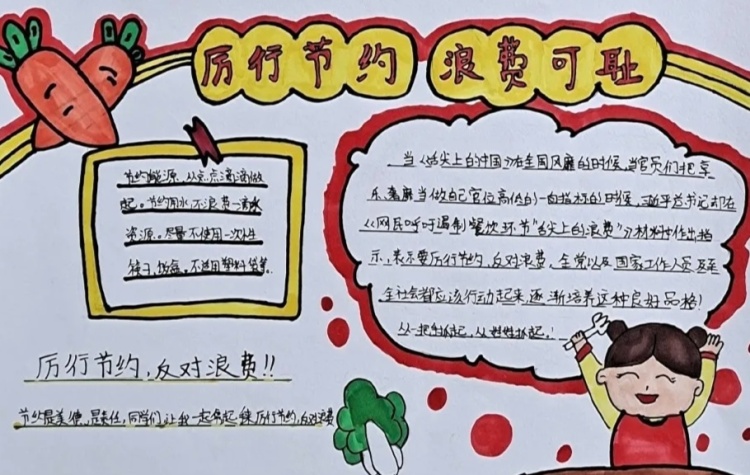 厉行节约 浪费可耻
节约能源,从点点滴滴做
起。节约用水,不浪费一滴水
资源。尽量不使用一次性
筷子、饭盒。不适用塑料袋等.
当《舌尖上的中国》在全国风靡的时候,当官员们把享
乐、奢靡当做自己官位高低的一向指标的时候,习近平总书记却在
《网民呼吁遏制餐饮环节"舌尖上的浪费"》材料中作出指
示,表示要厉行节约,反对浪费。全党以及国家工作人员及至
全社会都应该行动起来,逐渐培养这种良好品格!
从一把手抓起,从
厉行节约,反对浪费!!
节约是美德,是责任,同学们,让我一起 厉行节约,反对浪费